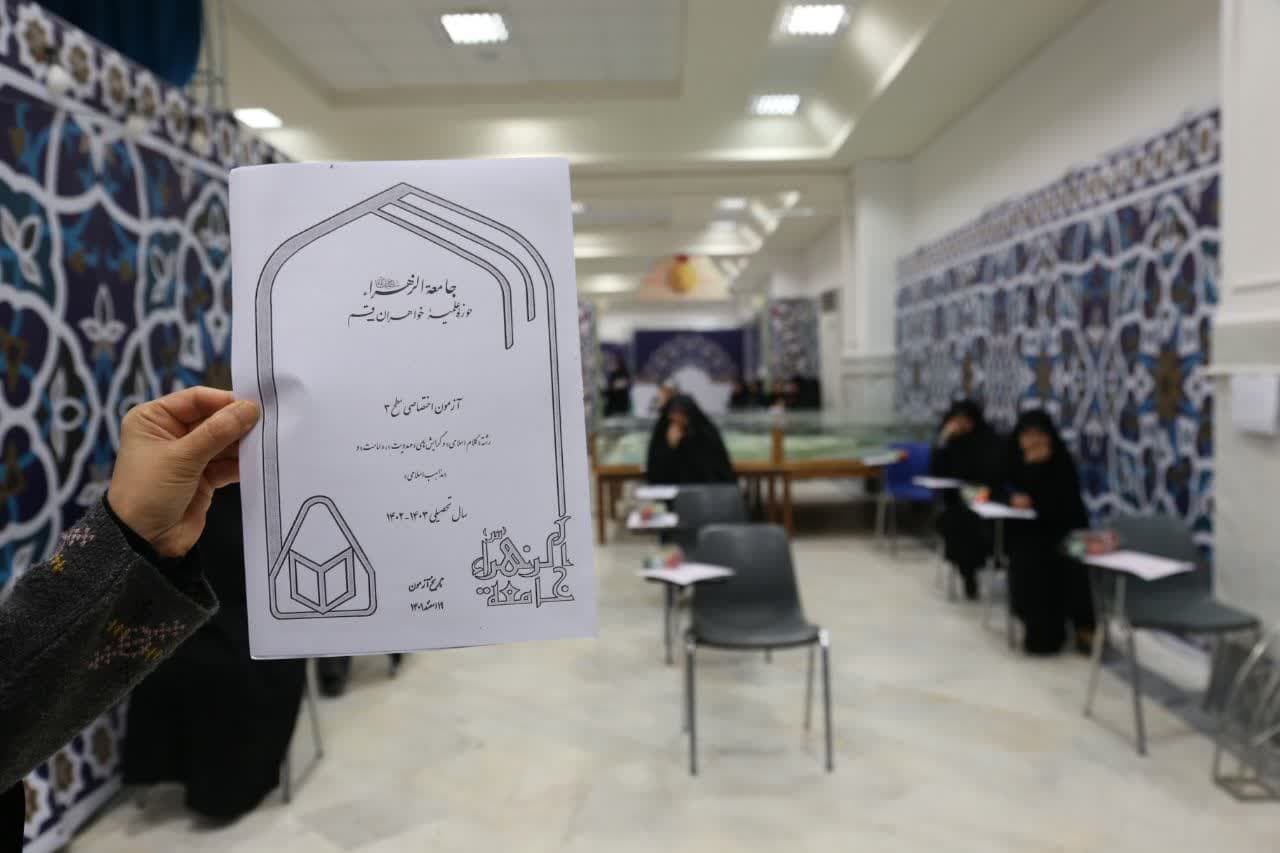 جامعة الزهراء
حوزه علمیهٔ خواهران قم
آزمون اختصاصی سطح ۳
رشته «کلام اسلامی» و گرایش‌های «مهدویت»، «امامت» و
«مذاهب اسلامی»
سال تحصیلی ۱۴۰۳-۱۴۰۲
جامعة الزهراء
تاریخ آزمون
۱۹ اسفند ۱۴۰۱